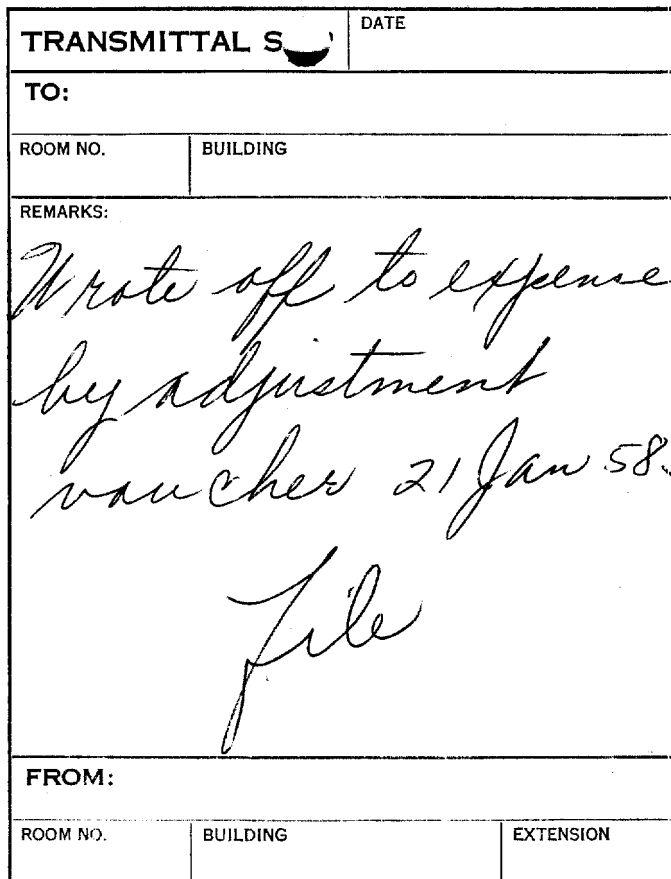 TRANSMITTAL S
DATE
TO:
ROOM NO. BUILDING
REMARKS:
Wrote off to expense
by adjustment
voucher 21 Jan 58.
File
FROM:
ROOM NO. BUILDING EXTENSION